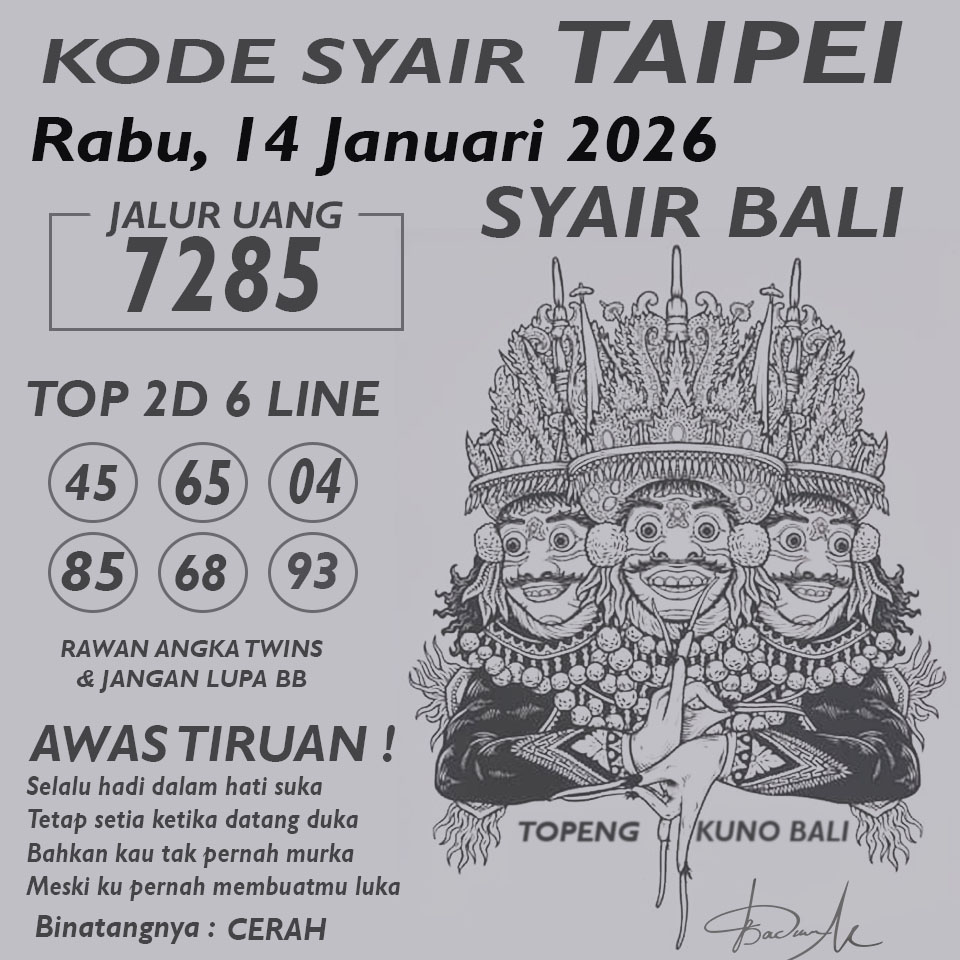 KODE SYAIR TAIPEI
Rabu, 14 Januari 2026
SYAIR BALI
JALUR UANG
7285
TOP 2D 6 LINE
45 65 04
85 68 93
RAWAN ANGKA TWINS
& JANGAN LUPA BB
AWAS TIRUAN !
Selalu hadi dalam hati suka
Tetap setia ketika datang duka
Bahkan kau tak pernah murka
Meski ku pernah membuatmu luka
Binatangnya : CERAH
TOPENG KUNO BALI